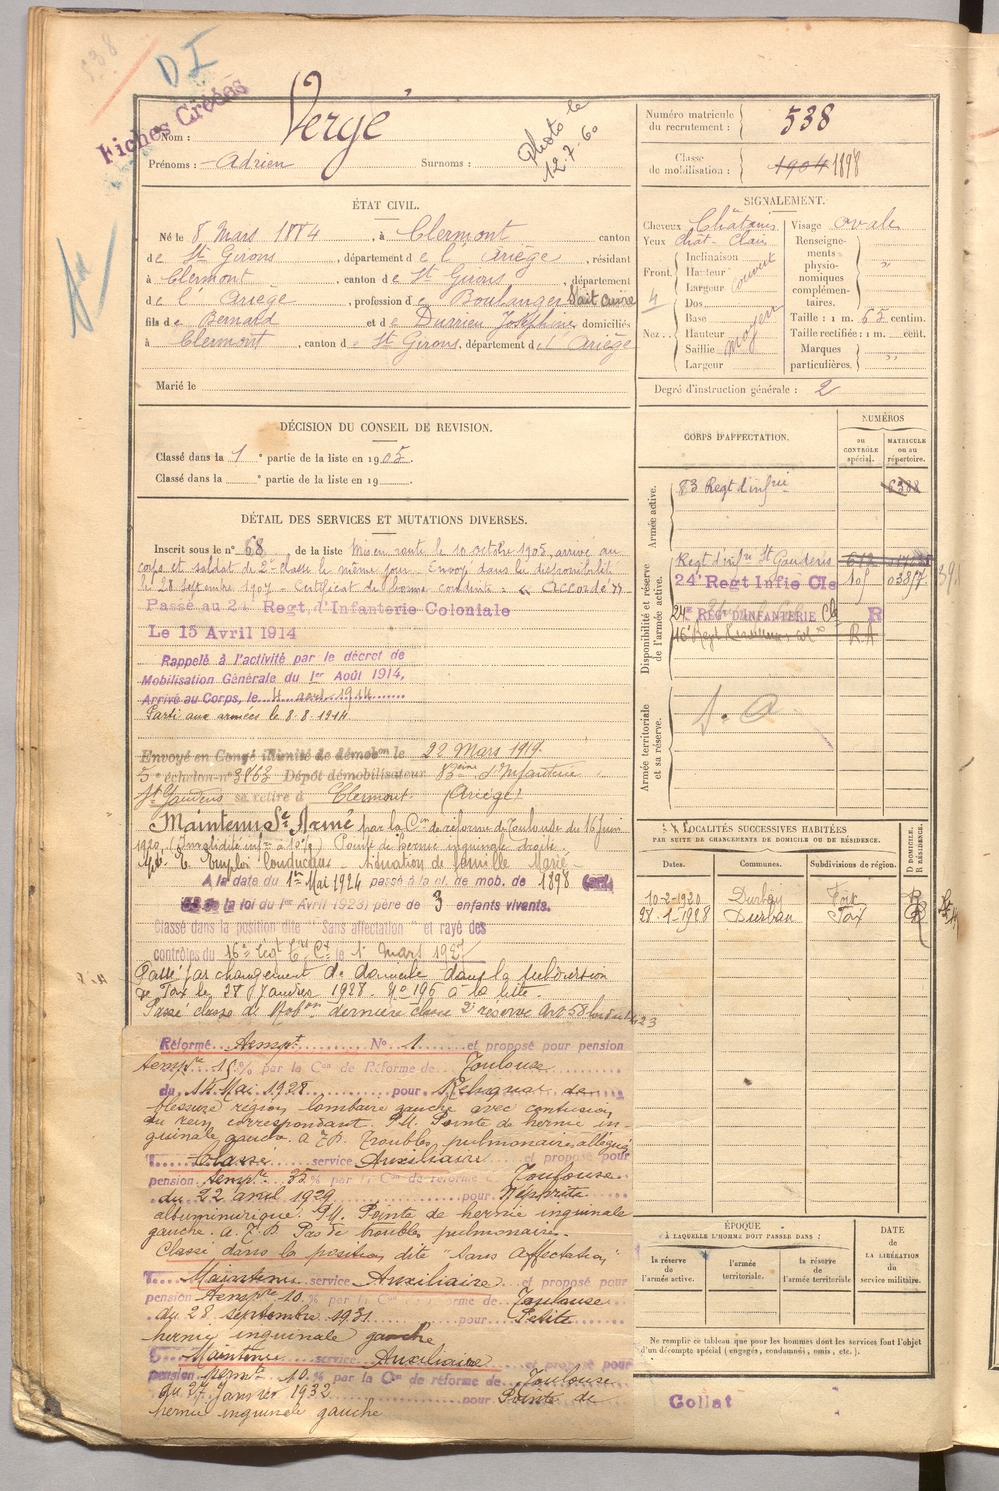 538
D I
Fiches Créées
Nom : Vergé
Prénoms : Adrien Surnoms :
Photo le
12.7.60
Numéro matricule
du recrutement : 538
Classe
de mobilisation : 1904 1898
ÉTAT CIVIL.
Né le 8 Mars 1884, à Clermont canton
de St Girons, département de l'Ariège, résidant
à Clermont, canton de St Girons, département
de l'Ariège, profession de Boulanger Sait cuire
fils de Bernard et de Durrieu Joséphine domiciliés
à Clermont, canton de St Girons, département de l'Ariège
Marié le
SIGNALEMENT.
Cheveux Châtains Visage ovale
Yeux Chât - Clair
Renseigne-
ments
physio-
nomiques
complémen-
taires. "
Front. Inclinaison
Hauteur
Largeur
couvert
4
Nez... Dos
Base
Hauteur
Saillie
Largeur
moyen
Taille : 1 m. 65 centim.
Taille rectifiée : 1 m. cent.
Marques
particulières. "
Degré d'instruction générale : 2
DÉCISION DU CONSEIL DE REVISION.
Classé dans la 1e partie de la liste en 1905.
Classé dans la e partie de la liste en 19 .
DÉTAIL DES SERVICES ET MUTATIONS DIVERSES.
Inscrit sous le n° 68 de la liste Mis en route le 10 octobre 1905, arrivé au
corps et soldat de 2e classe le même jour. Envoyé dans la disponibilité
le 28 Septembre 1907 - Certificat de bonne conduite : "Accordé"
Passé au 24 Regt, d'Infanterie Coloniale
Le 15 Avril 1914
Rappelé à l'activité par le décret de
Mobilisation Générale du 1er Août 1914,
Arrivé au Corps, le 4 aout 1914
Parti aux armées le 8.8.1914
Envoyé en Congé illimité de démobon le 22 Mars 1919.
5e échelon n° 3863 Dépôt démobilisateur 83ème d'Infanterie
St Gaudens se retire à Clermont (Ariège)
Maintenu Sce Armé par la Con de réforme de Toulouse du 16 Juin
1920 (Invalidité infre à 10%) Pointe de hernie inguinale droite.
Emploi Conducteur - situation de famille Marié
A la date du 1er Mai 1924 passé à la cl. de mob. de 1898
de la loi du 1er Avril 1923) père de 3 enfants vivants.
Classé dans la position dite "Sans affectation" et rayé des
contrôles du 16e le 1er Mars 1927
Passé par changement de domicile dans la subdivision
de Foix le 28 Janvier 1928. No 196 à la liste.
Passé classe de Mobon dernière classe 2e réserve Art 58 loi du 1.4.23
Réformé Tempt No 1 et proposé pour pension
tempre 15% par la Con de Réforme de Toulouse
du 14 Mai 1928 pour Reliquat de
blessure région lombaire gauche avec contusion
du rein correspondant. P.U. Pointe de hernie in-
guinale gauche. a 7.B. Troubles pulmonaires allégués
Classé service Auxiliaire et proposé pour
pension tempre 35% par la Con de réforme de Toulouse
du 22 avril 1929 pour Néphrite
albuminurique. P.U. Pointe de hernie inguinale
gauche. a. 7.B Pas de troubles pulmonaires.
Classé dans la position dite "Sans Affectation"
Maintenu service Auxiliaire et proposé pour
pension tempre 10% par la Con de réforme de Toulouse
du 28 septembre 1931 pour Petite
hernie inguinale gauche
Maintenu service Auxiliaire et proposé pour
pension permte 10% par la Con de réforme de Toulouse
du 27 Janvier 1932 pour Pointe de
hernie inguinale gauche
CORPS D'AFFECTATION.
NUMÉROS
AU CONTRÔLE spécial.
MATRICULE ou au répertoire.
Armée active.
83 Regt d'infrie
Disponibilité et réserve
de l'armée active.
Regt d'infie St Gaudens 612
24e Regt Infie Cle 105 0387
24e REGT D'INFANTERIE Cle R
16e R.A
Armée territoriale
et sa réserve.
S.A
LOCALITÉS SUCCESSIVES HABITÉES
PAR SUITE DE CHANGEMENTS DE DOMICILE OU DE RÉSIDENCE.
Dates. Communes. Subdivisions de région. D DOMICILE. R RÉSIDENCE.
10-2-1920 Durban Foix R
28-1-1928 Durban Foix
ÉPOQUE
À LAQUELLE L'HOMME DOIT PASSER DANS :
la réserve
de l'armée active.
l'armée
territoriale.
la réserve
de l'armée territoriale
DATE
DE LA LIBÉRATION
du
service militaire.
Ne remplir ce tableau que pour les hommes dont les services font l'objet
d'un décompte spécial (engagés, condamnés, omis, etc.).
Collat